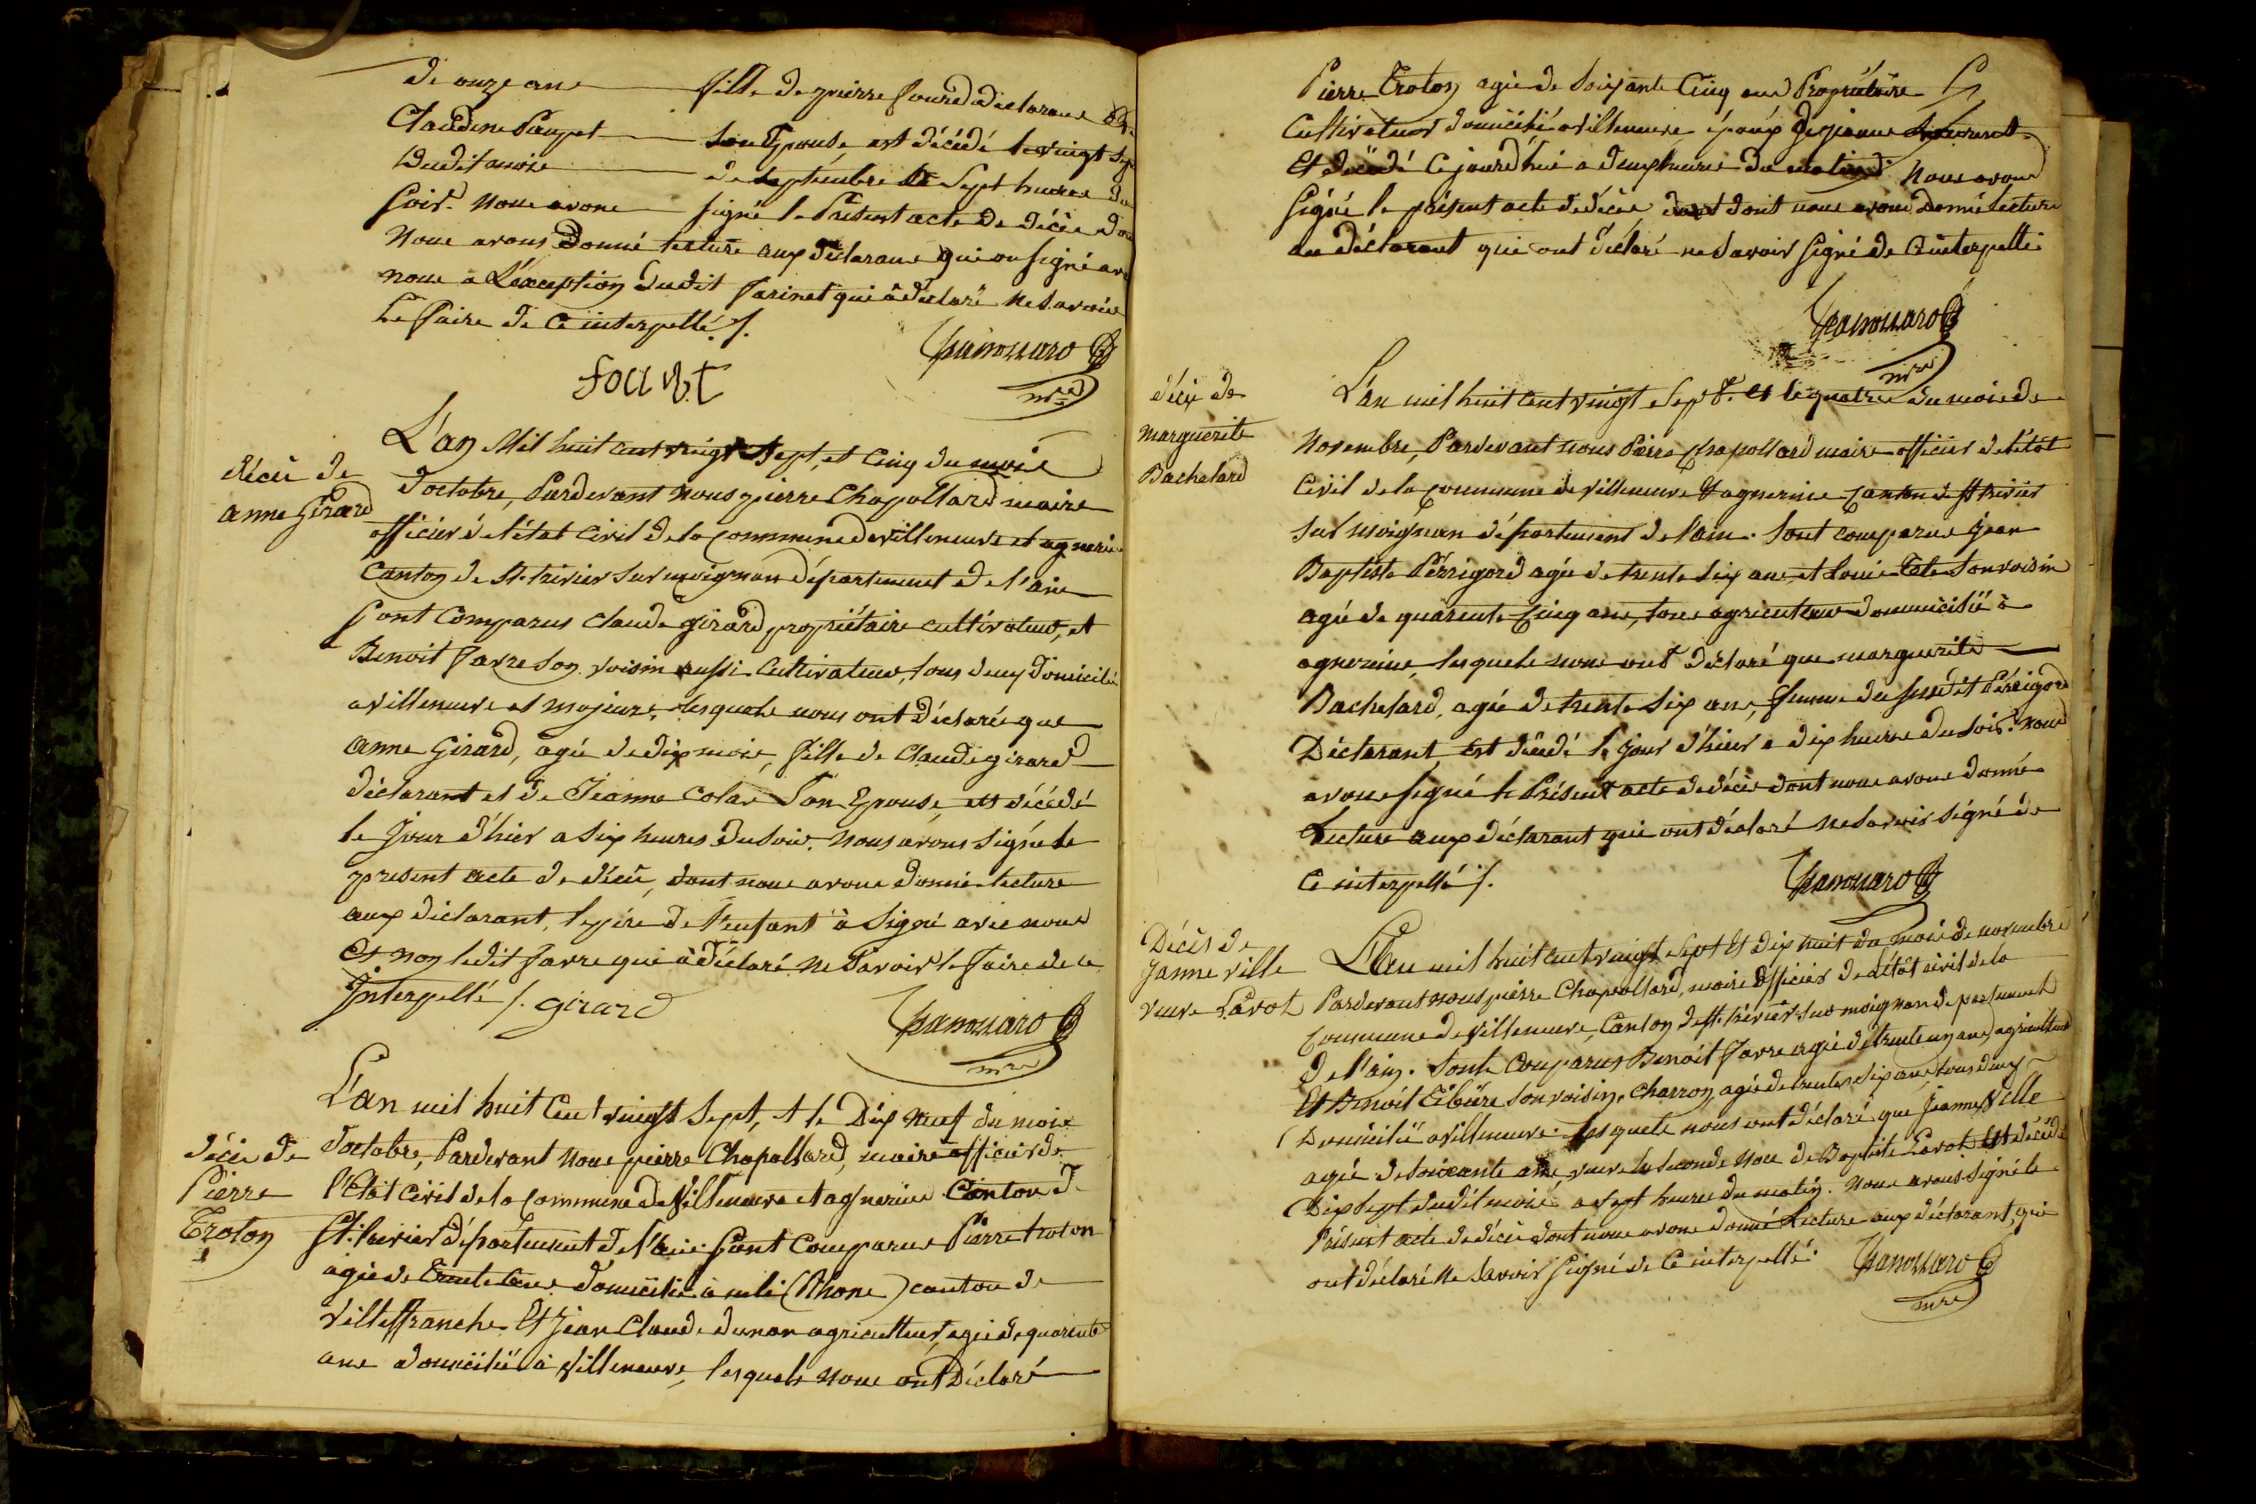 de onze ans fille de pierre declarant
Claudine son Epouse, est décédé le vingt sept
dudit mois de septembre à Sept heures du
soir. Nous avons signé le Présent acte de décès dont
Nous avons Donné lecture aux déclarans qui on signé avec
nous a L'éxception dudit qui à déclaré ne savoir
Le faire de ce interpellé /.
mre
décès de
anne Girard
L'an Mil huit cent vingt sept, et cinq du mois
d'octobre, Pardevant nous pierre Chapollard maire
officier de l'état civil de la commune de villeneuve et agnerins
Canton de St. trivier sur moignans département de l'ain
sont comparus claude girard propriétaire cultivateur, et
Benoit favre son voisin aussi cultivateur, tous deux domicilié
a villeneuve et majeurs, lesquels nous ont déclaré que
anne Girard, agée de dix mois, fille de claude girard
déclarant et de Jeanne colas son Epouse, est décédé
le jour d'hier a six heures du soir. Nous avons signé le
present acte de décès, dont nous avons donné lecture
aux déclarant, le père de l'enfant à Signé avec nous
et non ledit favre qui à déclaré ne savoir le faire de ce
Interpellé /. girard
mre
décès de
Pierre
Troton
L'an mil huit cent vingt Sept, et le Dix neuf du mois
d'octobre, Pardevant nous pierre Chapollard, maire officier de
l'Etat civil de la commune de Villeneuve et agnerins Canton de
St. trivier département de l'ain. Sont Comparus Pierre troton
agé de Trente ans domicilié à (Rhone) canton de
Villeffranche Et Jean Claude dunan agriculteur, agé de quarente
ans domicilié à villeneuve, lesquels nous ont Déclaré
Pierre Troton agé de soixante Cinq ans Propriétaire
Cultivateur domicilié a villeneuve époux de jeanne
Et décédé ce jourd'hui a deux heures du matin. Nous avons
signé le présent acte de décès dont nous avons donné lecture
au déclarant qui ont déclaré ne savoir signé de ce interpellé
mre
décès de
marguerite
Bachelard
L'an mil huit cent vingt sept. et le quatre du mois de
Novembre, Pardevant nous Pierre Chapollard maire officier de l'état
civil de la commune de villeneuve & agnerins canton de St trivier
sur moignan département de l'ain. Sont comparus Jean
Baptiste Périgord agé de trente six ans, et Louis son voisin
agé de quarente cinq ans, tous agriculteur domicilié à
agnereins, lesquels nous ont déclaré que marguerite
Bachelard, agée de trente six ans, femme du susdit Périgord
Déclarant, est décédé le jour d'hier a dix heures du soir. nous
avons signé le Présent acte de décès dont nous avons donné
Lecture aux déclarant qui ont déclaré ne savoir signé de
ce interpellé /.
Décès de
Janne ville
veuve Lavot
L'an mil huit cent vingt sept et dix huit du mois de novembre
Pardevant nous pierre Chapollard, maire officier de l'état civil de la
commune de villeneuve, Canton de St. trivier sur moignan département
de l'ain. Sont Comparus Benoit favre agé de trente un ans agriculteur
Et Benoit son voisin, Charron, agé de trente six ans tous deux
Domicilié a villeneuve. lesquels nous ont déclaré que Jeanne Ville
agée de soixante ans, veuve de seconde noce de Baptiste Lavot est décédé
Dix sept dudit mois a sept heures du matin. Nous avons signé le
Présent acte de décès dont nous avons donné lecture aux déclarant, qui
ont déclaré ne savoir signé de ce interpellé.
mre